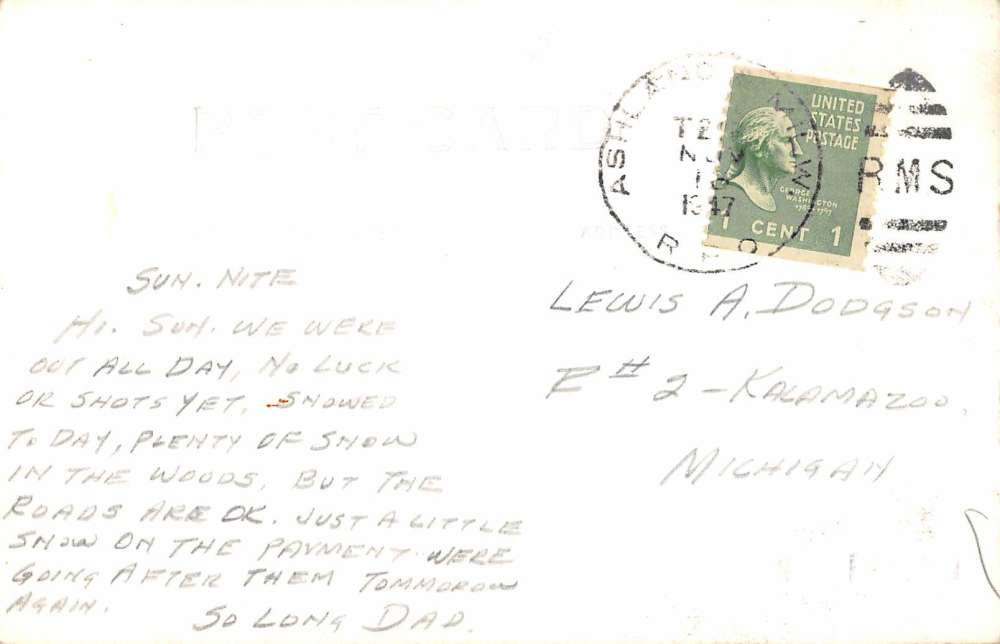 POST CARD
ASHLAND
NOV
1947
R P O
RMS
UNITED
STATES
POSTAGE
GEORGE
WASHINGTON
1789-1797
1 CENT 1
SUN. NITE
HI. SUN. WE WERE
OUT ALL DAY, NO LUCK
OR SHOTS YET. SNOWED
TO DAY, PLENTY OF SNOW
IN THE WOODS. BUT THE
ROADS ARE OK. JUST A LITTLE
SNOW ON THE PAYMENT WERE
GOING AFTER THEM TOMMOROW
AGAIN.
SO LONG DAD.
LEWIS A. DODGSON
R # 2 - KALAMAZOO.
MICHIGAN